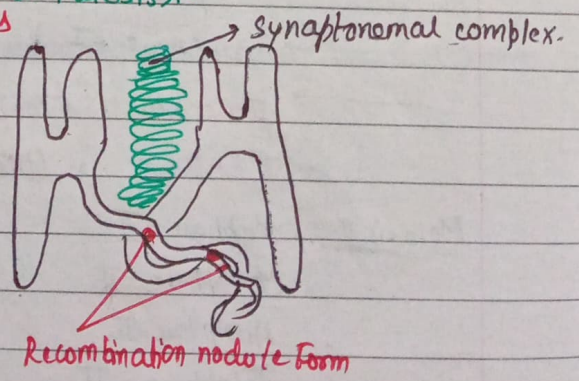 Synaptonemal complex.
Recombination nodule Form